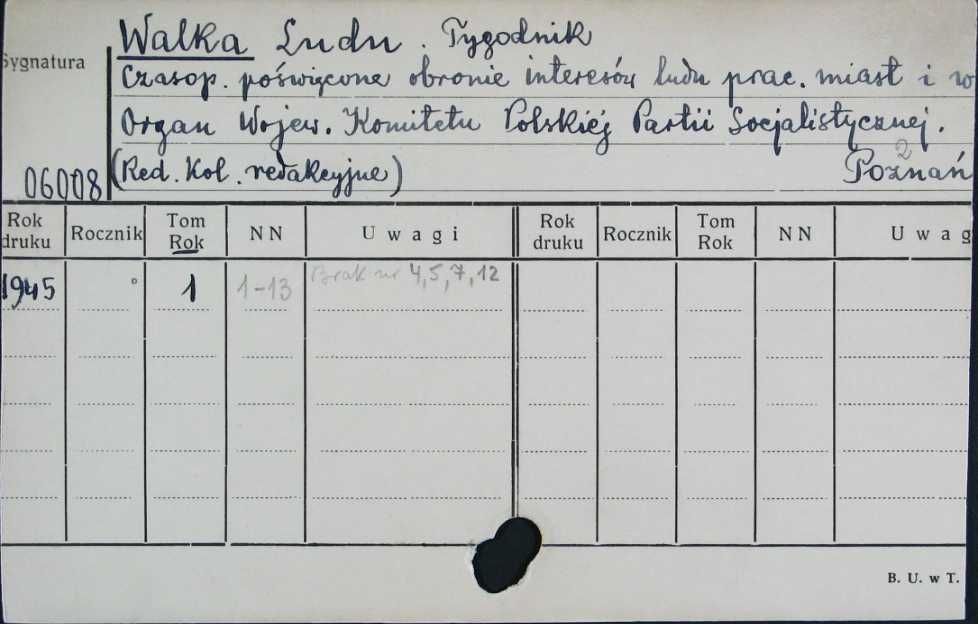 Walka Ludu. Tygodnik
Sygnatura
Czasop. poświęcone obronie interesów ludu prac. miast i w
Organ Wojew. Komitetu Polskiej Partii Socjalistycznej.
2
06008 (Red. Kol. redakcyjne) Poznań
Rok druku Rocznik Tom Rok NN Uwagi Rok druku Rocznik Tom Rok NN Uwag
1945 ° 1 1-13 Brak nr 4,5,7,12
B. U. w T.